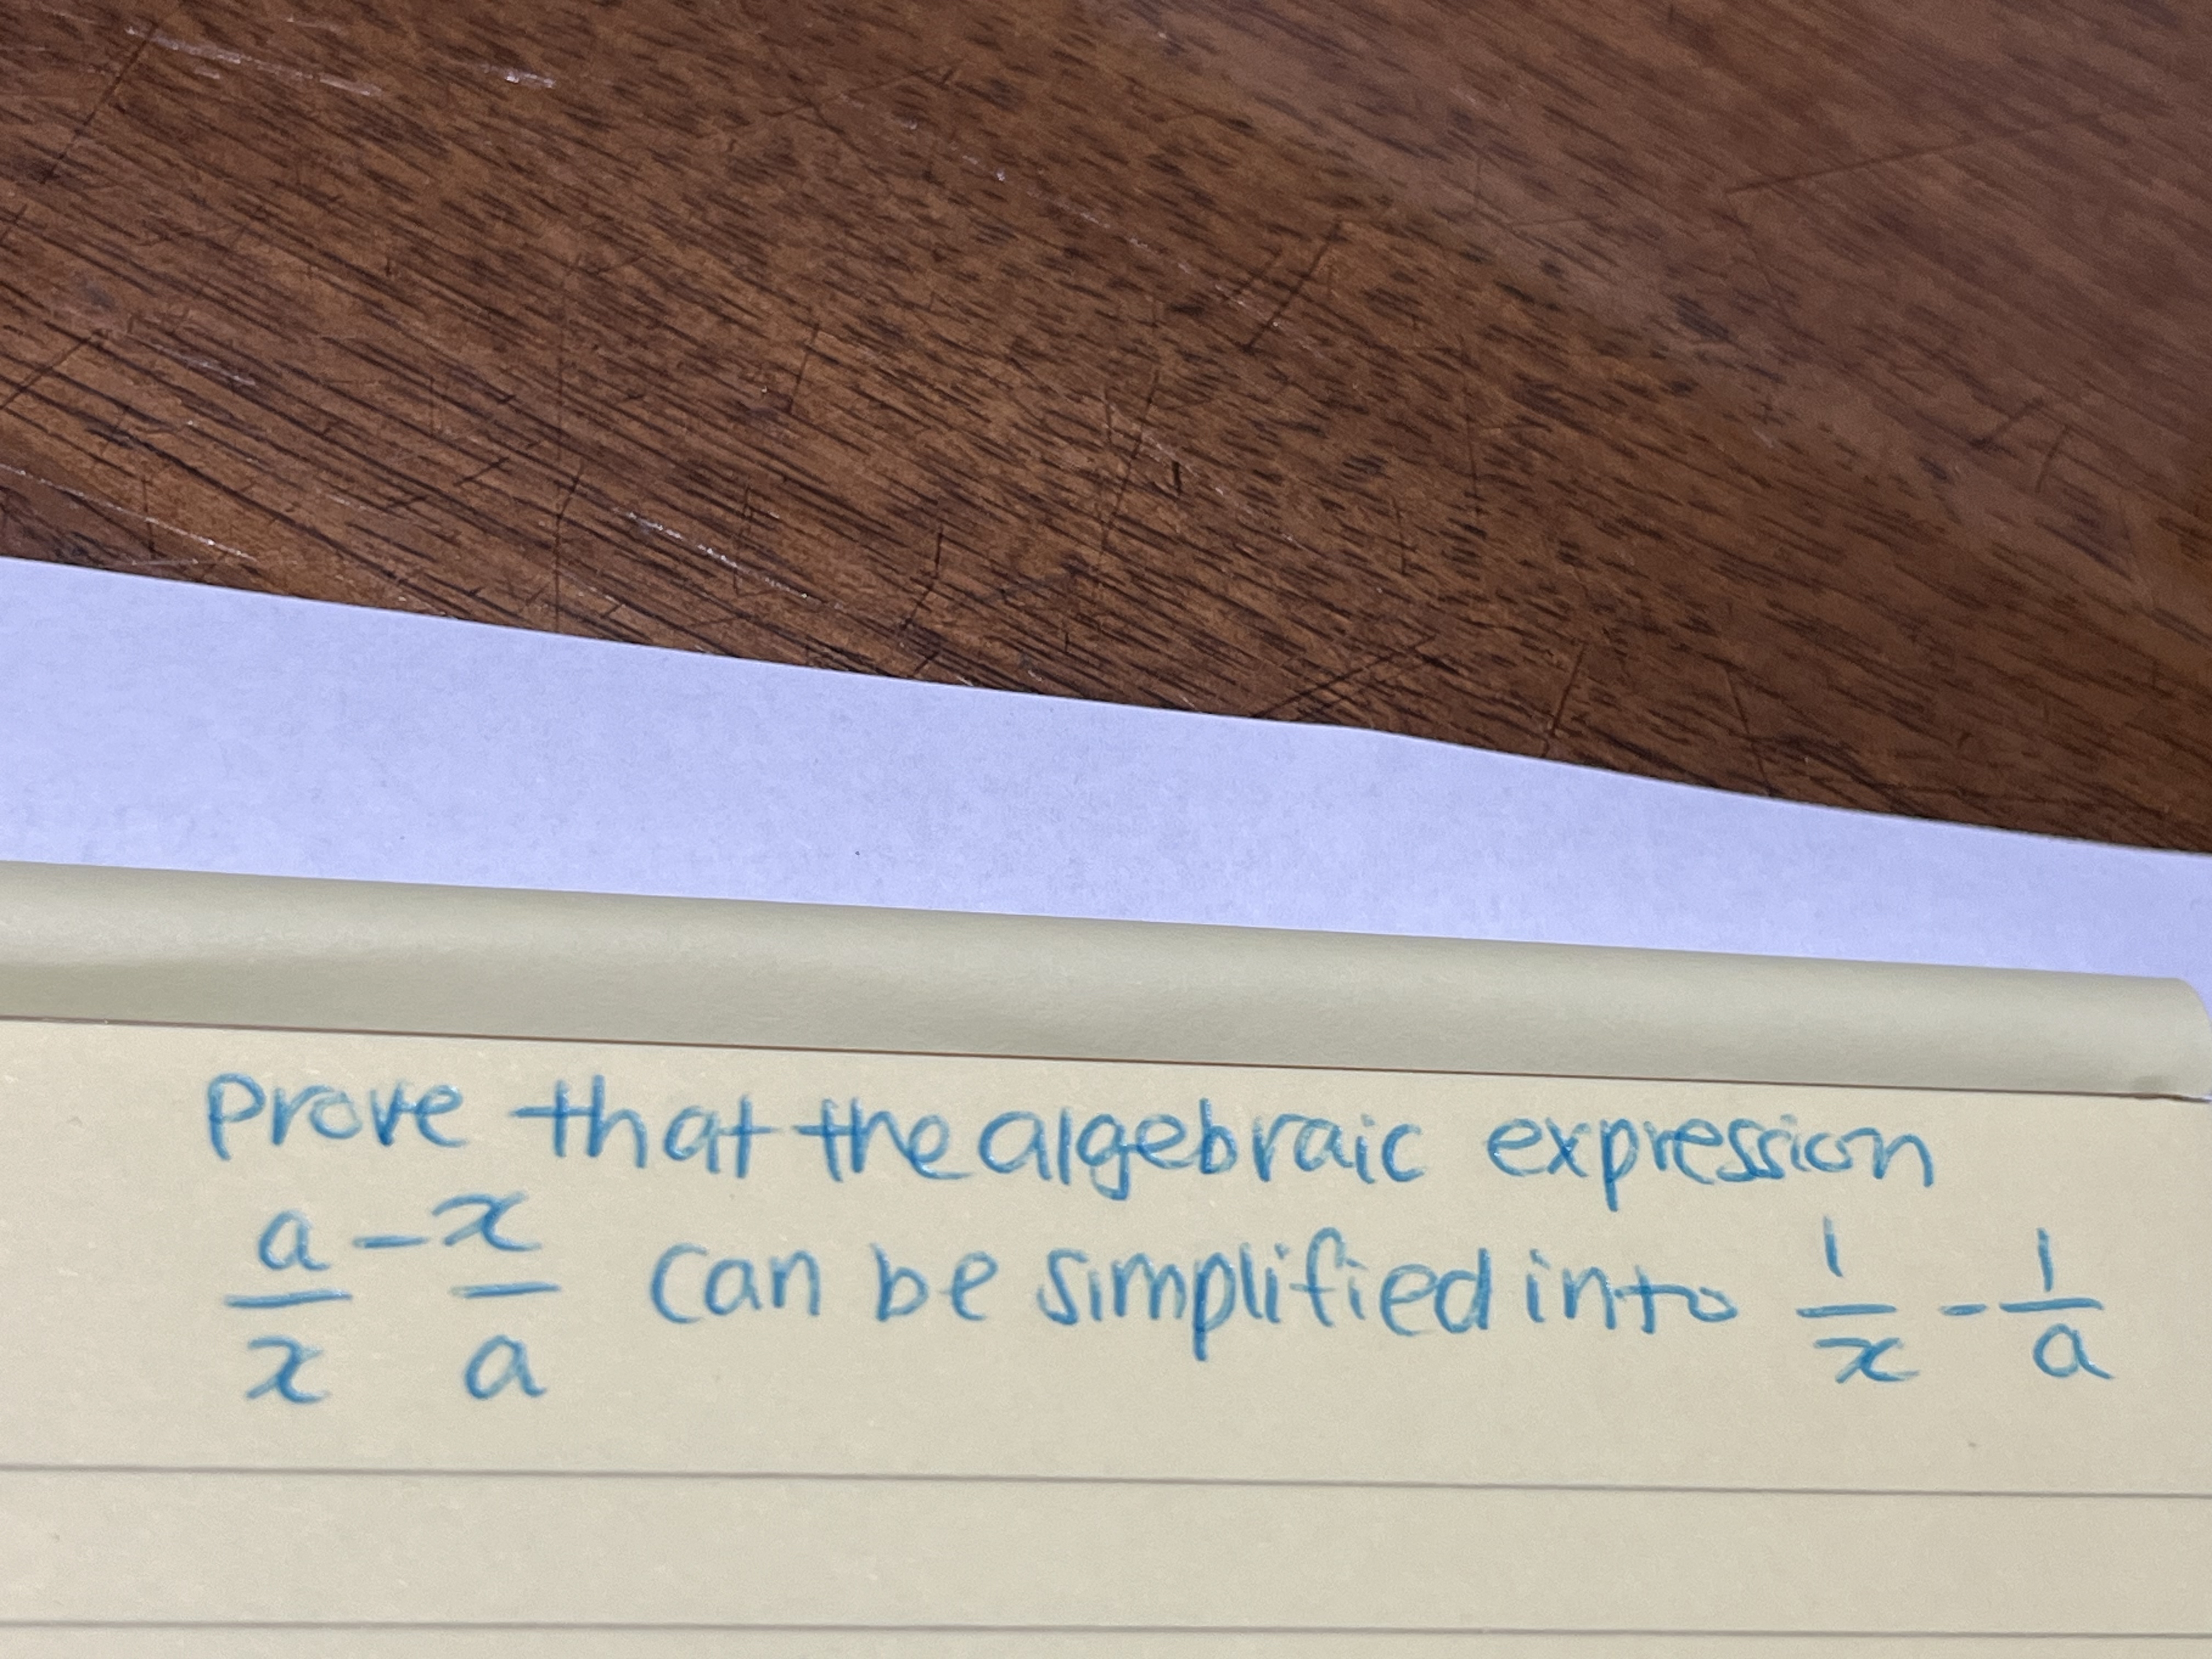 prove that the algebraic expression
a/x - x/a can be simplified into 1/x - 1/a